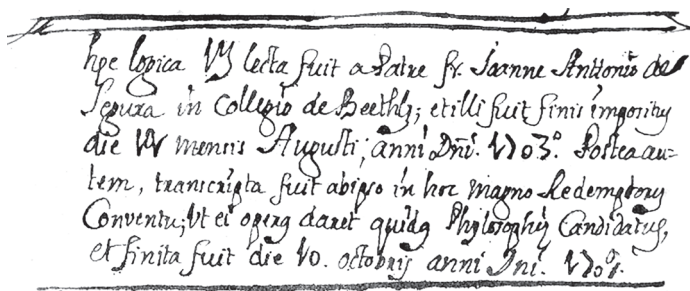 hęc logica Vÿ lecta fuit a Patre fr. Joanne Anttonio de
Segura in Collegio de Beethlz; et illi fuit finis impositus
die mensis Augusti; anni Dñi. 1703º. Postea au-
tem, transcripta fuit ab ipso in hoc magno Redemptorÿ
Conventu; Vt ei operã daret quidã Phylosophiÿ Candidatus,
et finita fuit die 10. octobris anni Dñi.